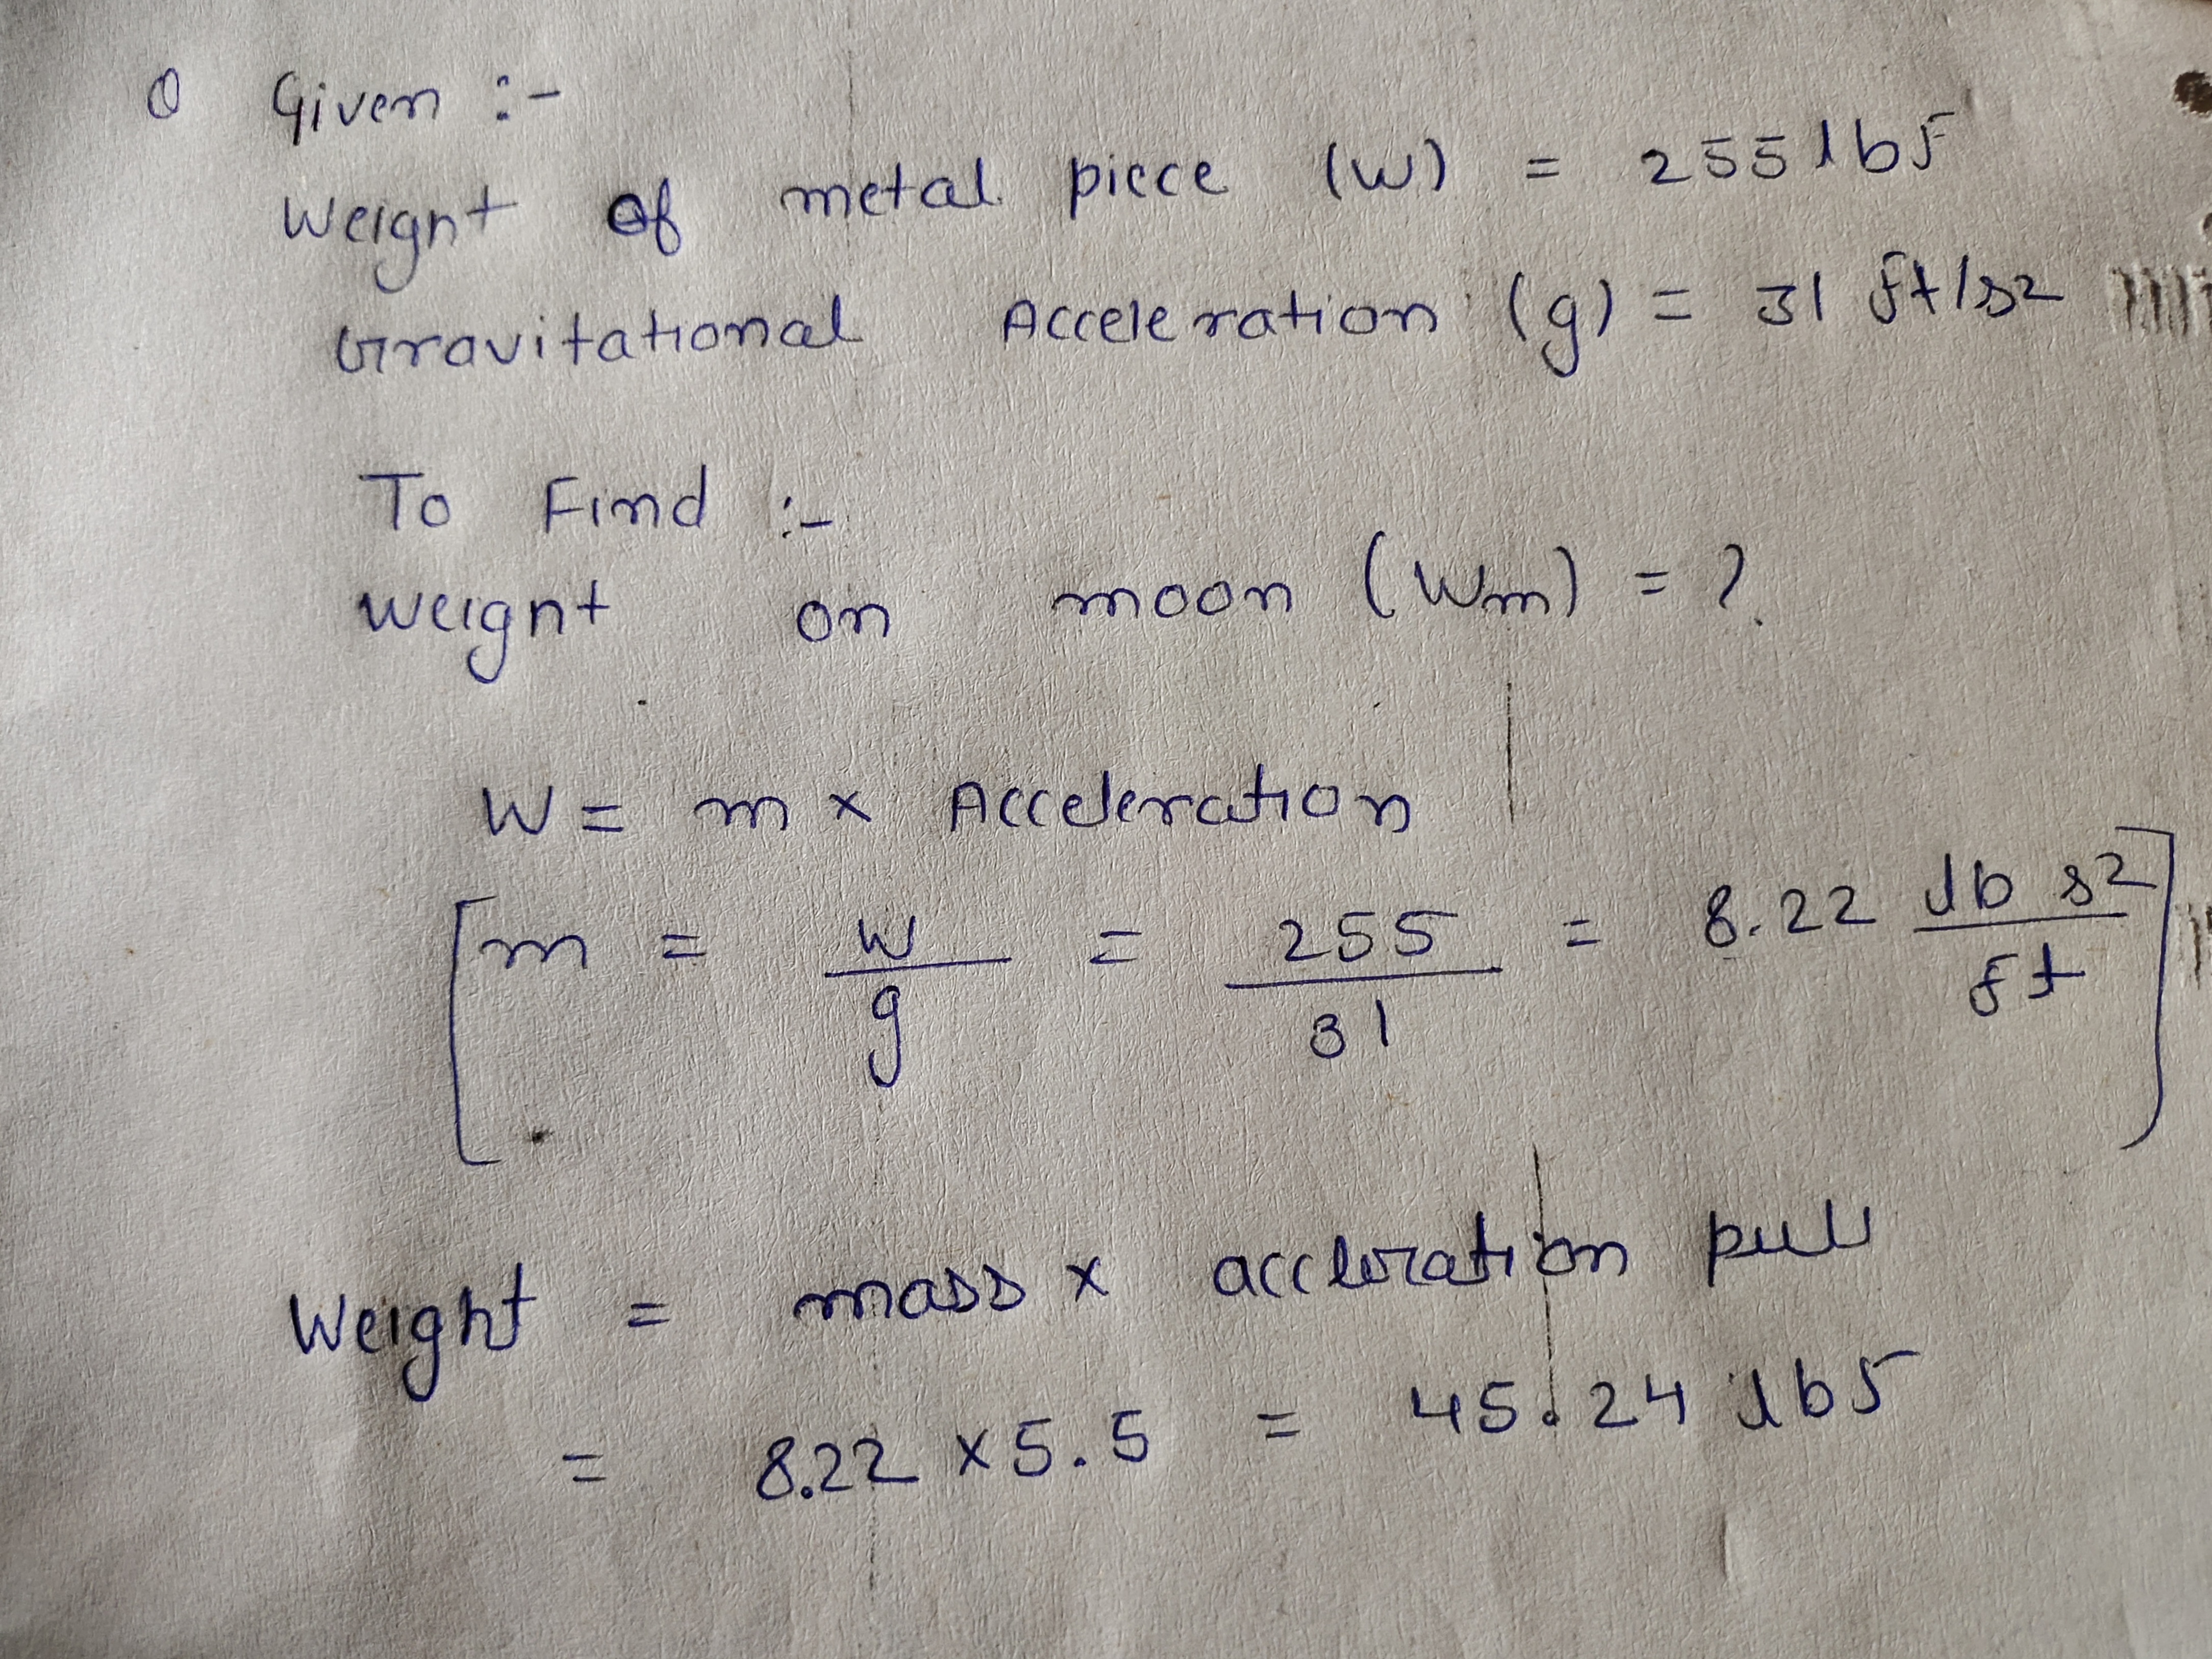 0 Given :-
Weignt of metal piece (W) = 255 lbf
Gravitational Acceleration (g) = 31 ft/s2
To Find :-
weignt on moon (Wm) = ?
W = m x Acceleration
m = W/g = 255/31 = 8.22 lb s2/ft
Weight = mass x accleration pull
= 8.22 x 5.5 = 45.24 lbf